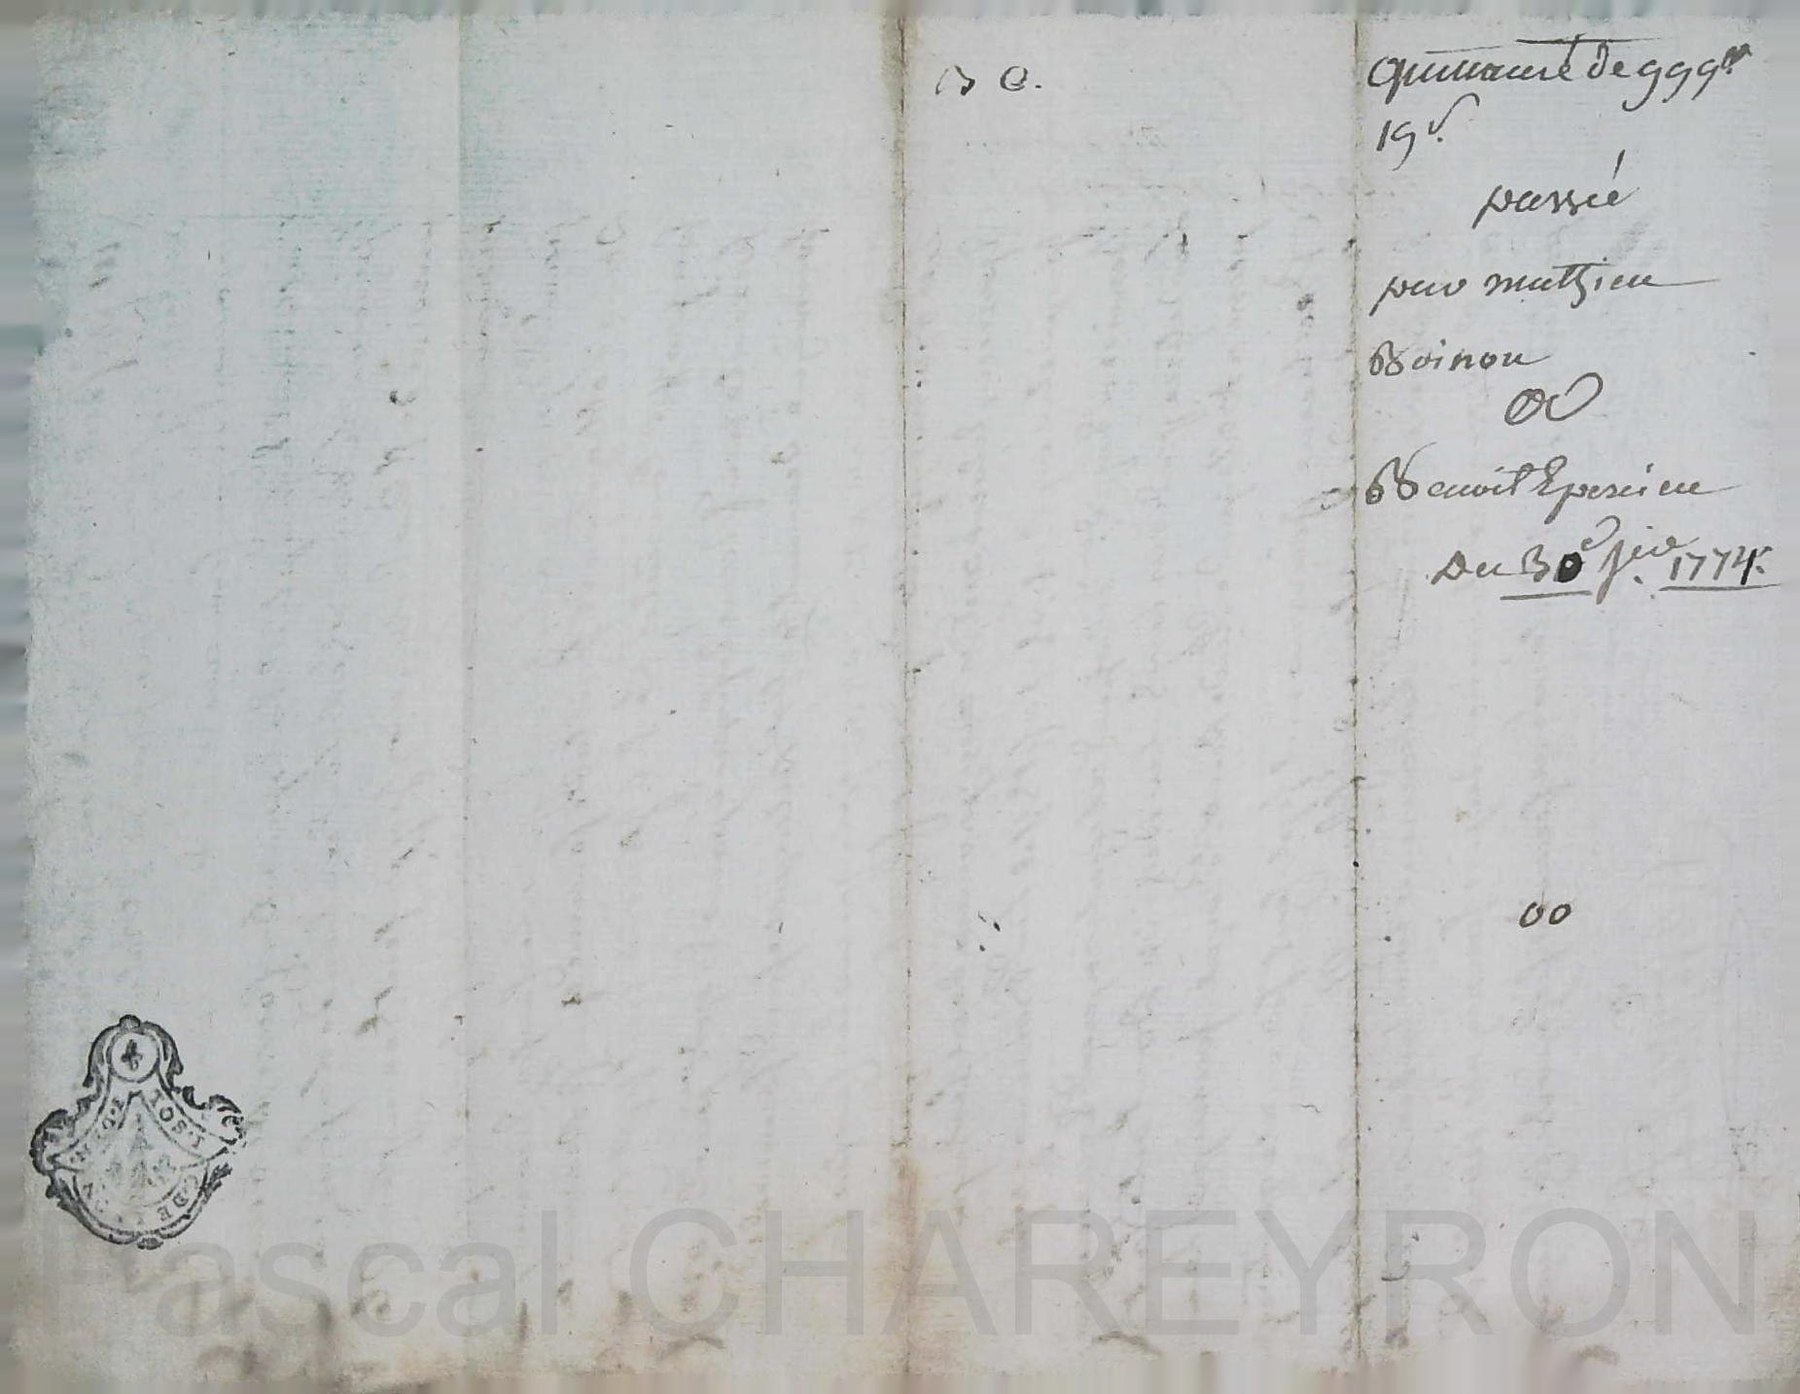 B C.
Quittance de 999#
19s.
passée
par mathieu
Boinon
A
Benoit Eperieu
Du 30e jer. 1774.
00
1 SOL
GDE
Pascal CHAREYRON